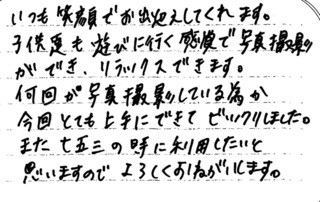 いつも笑顔でお出迎えしてくれます。
子供達も遊びに行く感覚で写真撮影
ができ、リラックスできます。
何回か写真撮影している為か
今回とても上手にできてビックリしました。
また七五三の時に利用したいと
思いますので よろしくおねがいします。